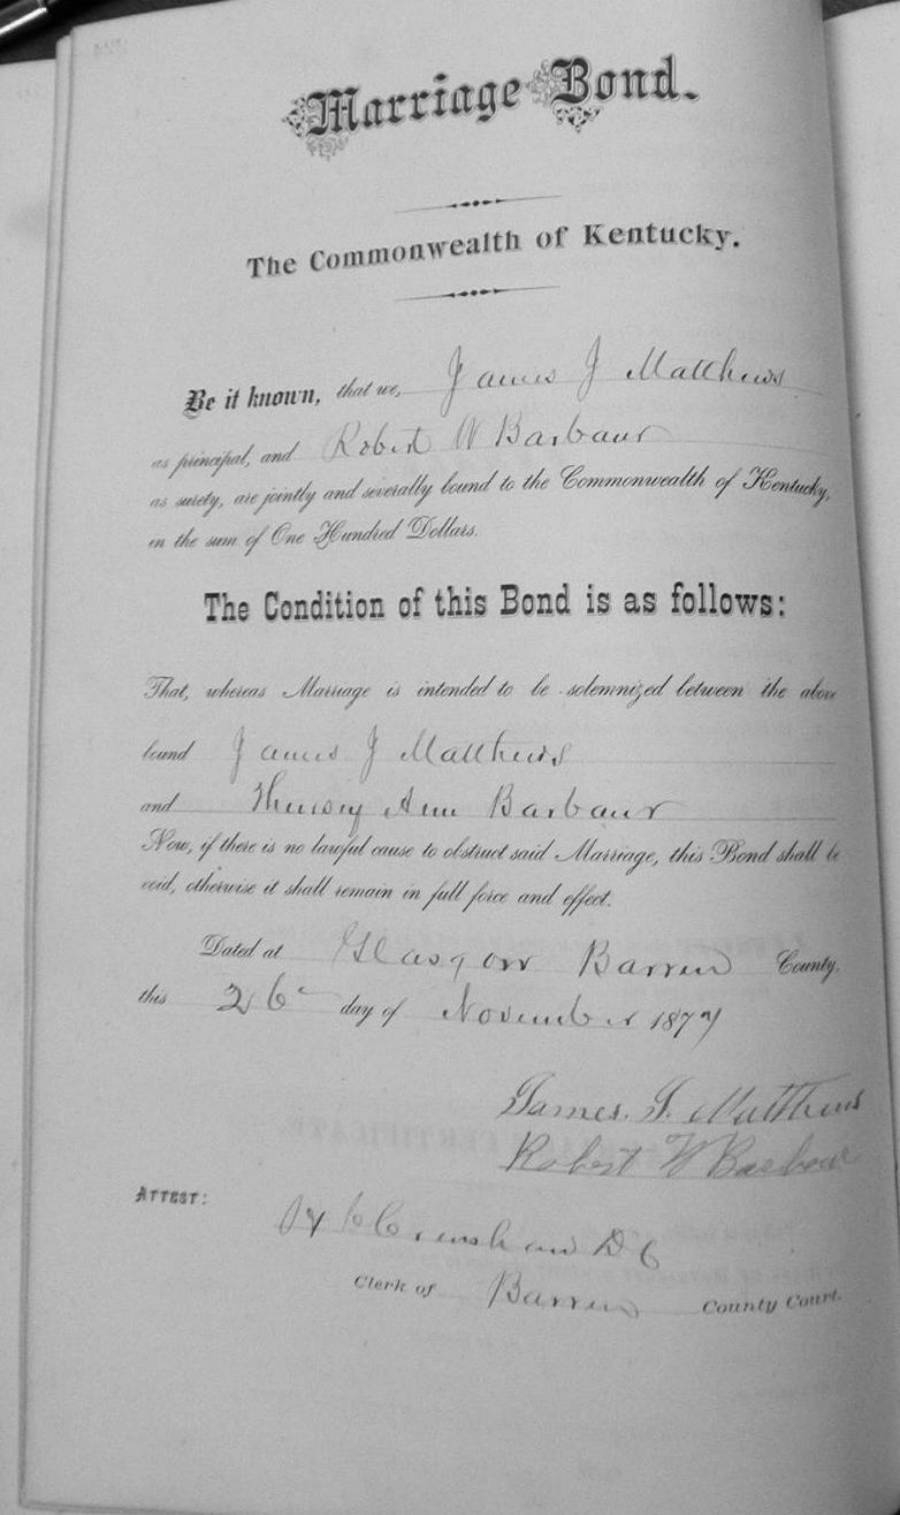 Marriage Bond.
The Commonwealth of Kentucky.
Be it known, that we, James J Matthews
as principal, and Robert W Barbour
as surety, are jointly and severally bound to the Commonwealth of Kentucky,
in the sum of One Hundred Dollars.
The Condition of this Bond is as follows:
That, whereas Marriage is intended to be solemnized between the above
bound James J Matthews
and Ann Barbour
Now, if there is no lawful cause to obstruct said Marriage, this Bond shall be
void, otherwise it shall remain in full force and effect.
Dated at Glasgow Barren County,
this 26 day of November 1877
James. J. Matthews
Robert W Barbour
ATTEST:
Crenshaw D C
Clerk of Barren County Court.